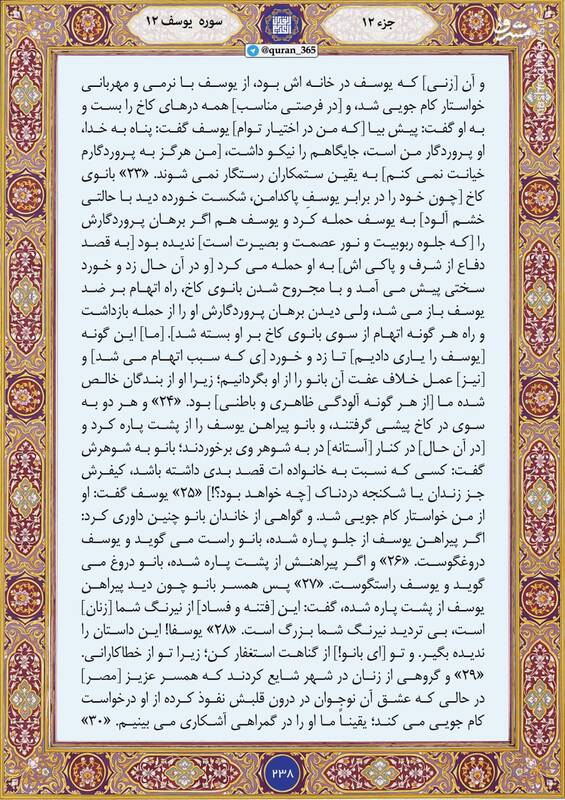 جزء ۱۲
سوره یوسف ۱۲
@quran_365
مشرق
mashreghnews.ir
و آن [زنی] که یوسف در خانه اش بود، از یوسف با نرمی و مهربانی
خواستار کام جویی شد، و [در فرصتی مناسب] همه درهای کاخ را بست و
به او گفت: پیش بیا [که من در اختیار توام] یوسف گفت: پناه به خدا،
او پروردگار من است، جایگاهم را نیکو داشت، [من هرگز به پروردگارم
خیانت نمی کنم] به یقین ستمکاران رستگار نمی شوند. «۲۳» بانوی
کاخ [چون خود را در برابر یوسفِ پاکدامن، شکست خورده دید با حالتی
خشم آلود] به یوسف حمله کرد و یوسف هم اگر برهان پروردگارش
را [که جلوه ربوبیت و نور عصمت و بصیرت است] ندیده بود [به قصد
دفاع از شرف و پاکی اش] به او حمله می کرد [و در آن حال زد و خورد
سختی پیش می آمد و با مجروح شدن بانوی کاخ، راه اتهام بر ضد
یوسف باز می شد، ولی دیدن برهان پروردگارش او را از حمله بازداشت
و راه هر گونه اتهام از سوی بانوی کاخ بر او بسته شد]. [ما] این گونه
[یوسف را یاری دادیم] تا زد و خورد [ی که سبب اتهام می شد] و
[نیز] عمل خلاف عفت آن بانو را از او بگردانیم؛ زیرا او از بندگان خالص
شده ما [از هر گونه آلودگی ظاهری و باطنی] بود. «۲۴» و هر دو به
سوی در کاخ پیشی گرفتند، و بانو پیراهن یوسف را از پشت پاره کرد و
[در آن حال] در کنار [آستانه] در به شوهر وی برخوردند؛ بانو به شوهرش
گفت: کسی که نسبت به خانواده ات قصد بدی داشته باشد، کیفرش
جز زندان یا شکنجه دردناک [چه خواهد بود؟!] «۲۵» یوسف گفت: او
از من خواستار کام جویی شد. و گواهی از خاندان بانو چنین داوری کرد:
اگر پیراهن یوسف از جلو پاره شده، بانو راست می گوید و یوسف
دروغگوست. «۲۶» و اگر پیراهنش از پشت پاره شده، بانو دروغ می
گوید و یوسف راستگوست. «۲۷» پس همسر بانو چون دید پیراهن
یوسف از پشت پاره شده، گفت: این [فتنه و فساد] از نیرنگ شما [زنان]
است، بی تردید نیرنگ شما بزرگ است. «۲۸» یوسفا! این داستان را
ندیده بگیر. و تو [ای بانو!] از گناهت استغفار کن؛ زیرا تو از خطاکارانی.
«۲۹» و گروهی از زنان در شهر شایع کردند که همسر عزیز [مصر]
در حالی که عشق آن نوجوان در درون قلبش نفوذ کرده از او درخواست
کام جویی می کند؛ یقیناً ما او را در گمراهی آشکاری می بینیم. «۳۰»
۲۳۸